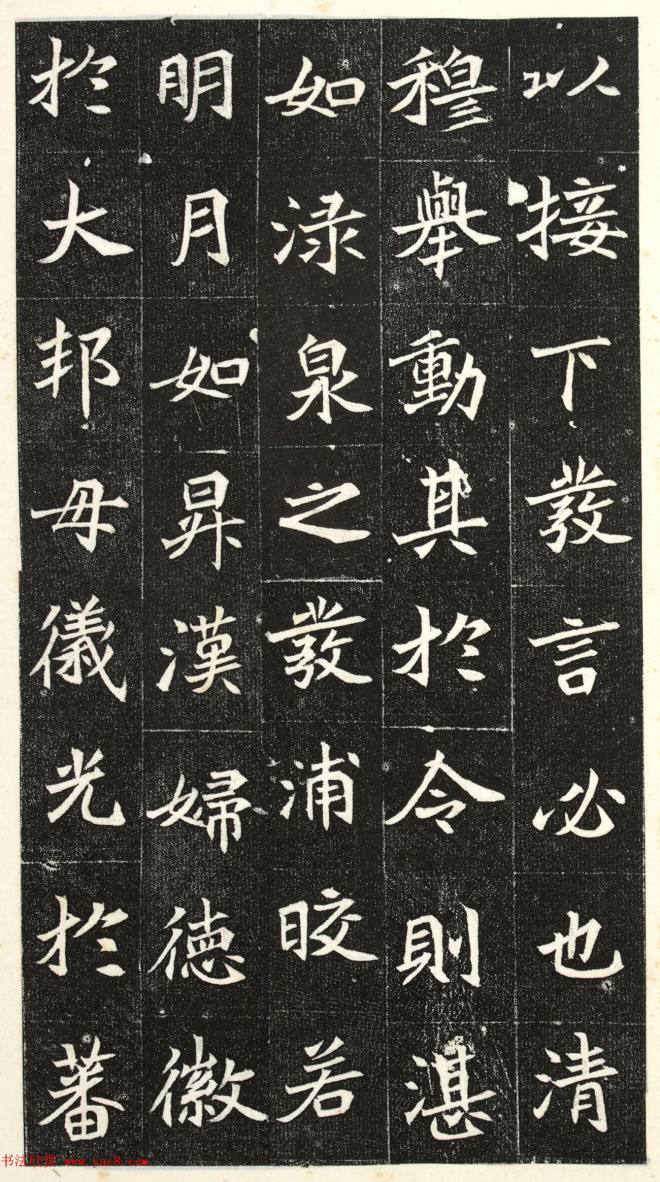 以接下發言必也清
穆舉動其於令則湛
如渌泉之發浦晈若
明月如昇漢婦徳徽
於大邦母儀光於蕃
书法欣赏 www.yac8.com